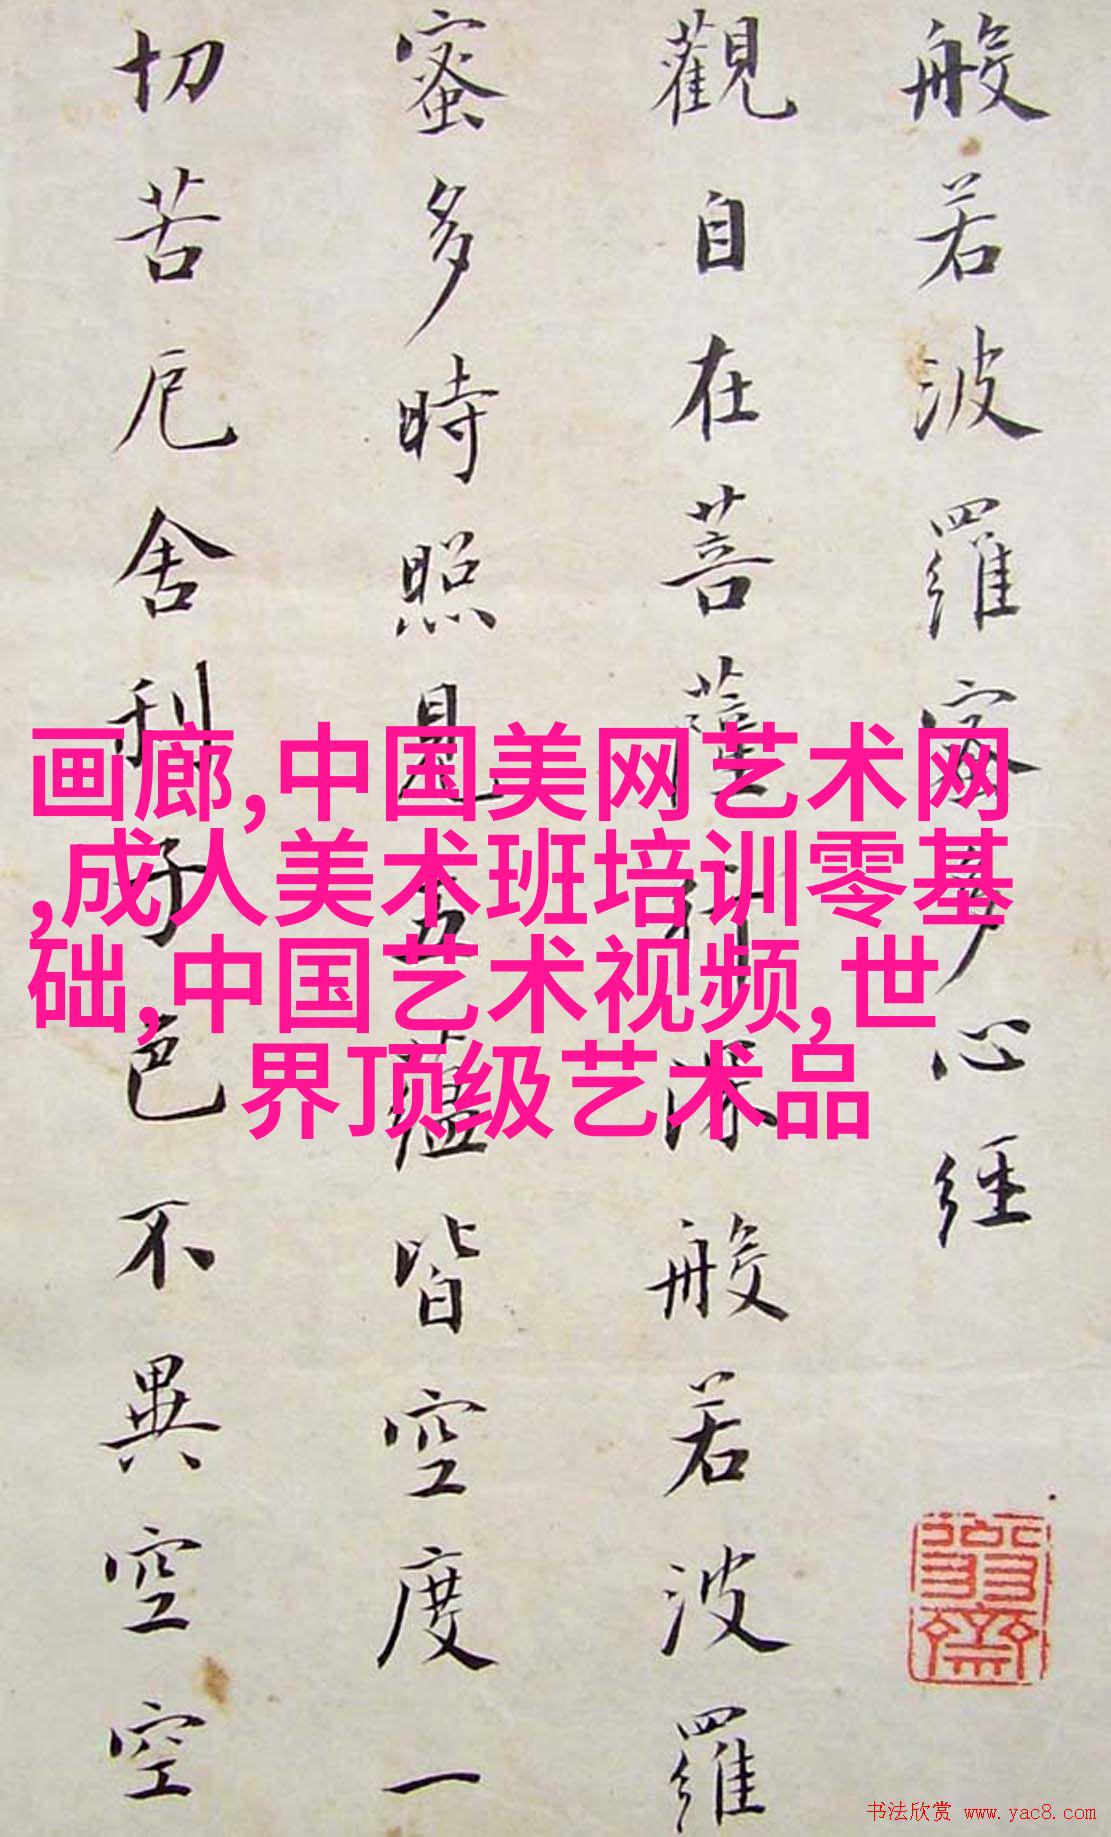 般若波羅蜜多心經
觀自在菩薩行深般若波羅
蜜多時照見五蘊皆空度一
切苦厄舍利子色不異空空
画廊,中国美网艺术网
,成人美术班培训零基
础,中国艺术视频,世
界顶级艺术品
书法欣赏 www.yac8.com